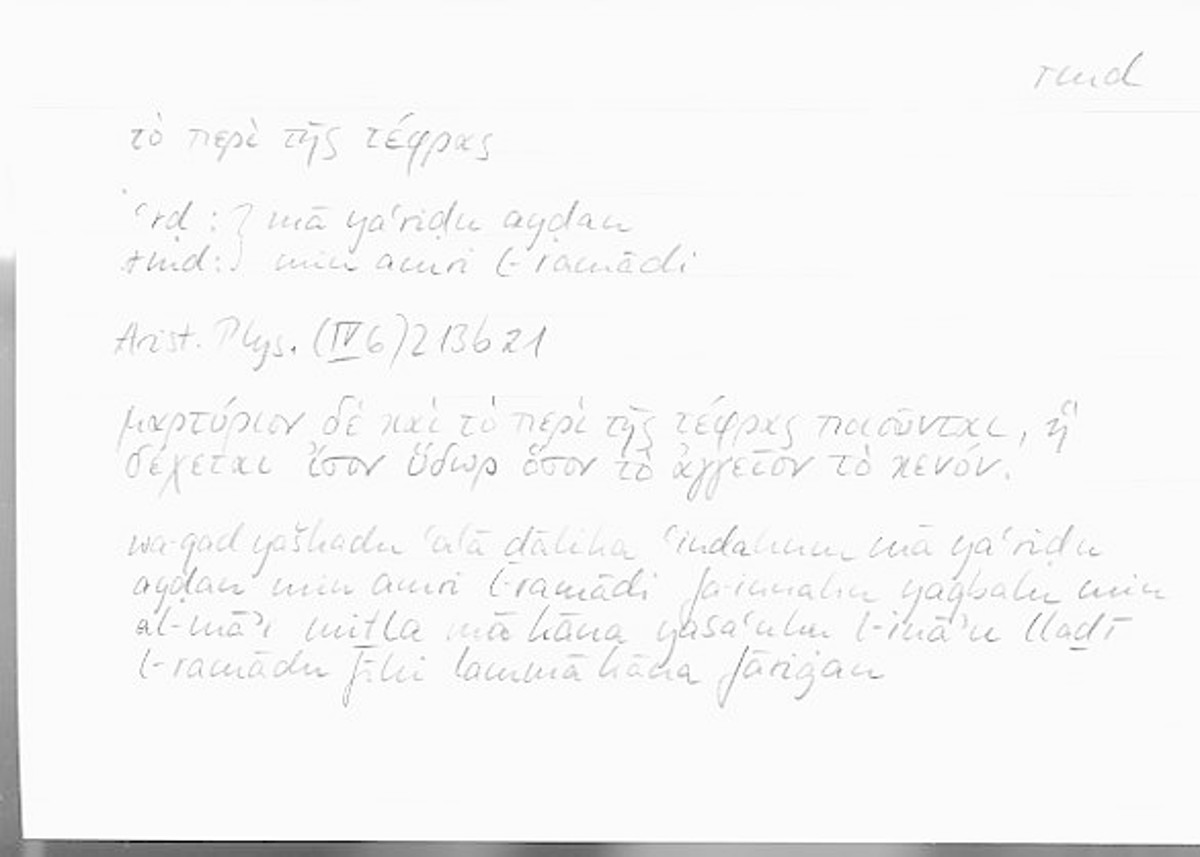 rmd
τὸ περὶ τῆς τέφρας
ʿrḍ : } mā yaʿriḍu ayḍan
rmd: } min amri l-ramādi
Arist. Phys. (IV 6) 213b21
μαρτύριον δὲ καὶ τὸ περὶ τῆς τέφρας ποιοῦνται, ἣ
δέχεται ἴσον ὕδωρ ὅσον τὸ ἀγγεῖον τὸ κενόν.
wa-qad yašhadu ʿalā ḏālika ʿindahum mā yaʿriḍu
ayḍan min amri l-ramādi fa-innahu yaqbalu min
al-māʾi miṯla mā kāna yasaʿuhu l-ināʾu llaḏī
l-ramādu fīhi lammā kāna fāriġan